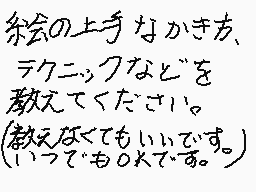 絵の上手なかき方、
テクニックなどを
教えてください。
(教えなくてもいいです。
いつでもOKです。)